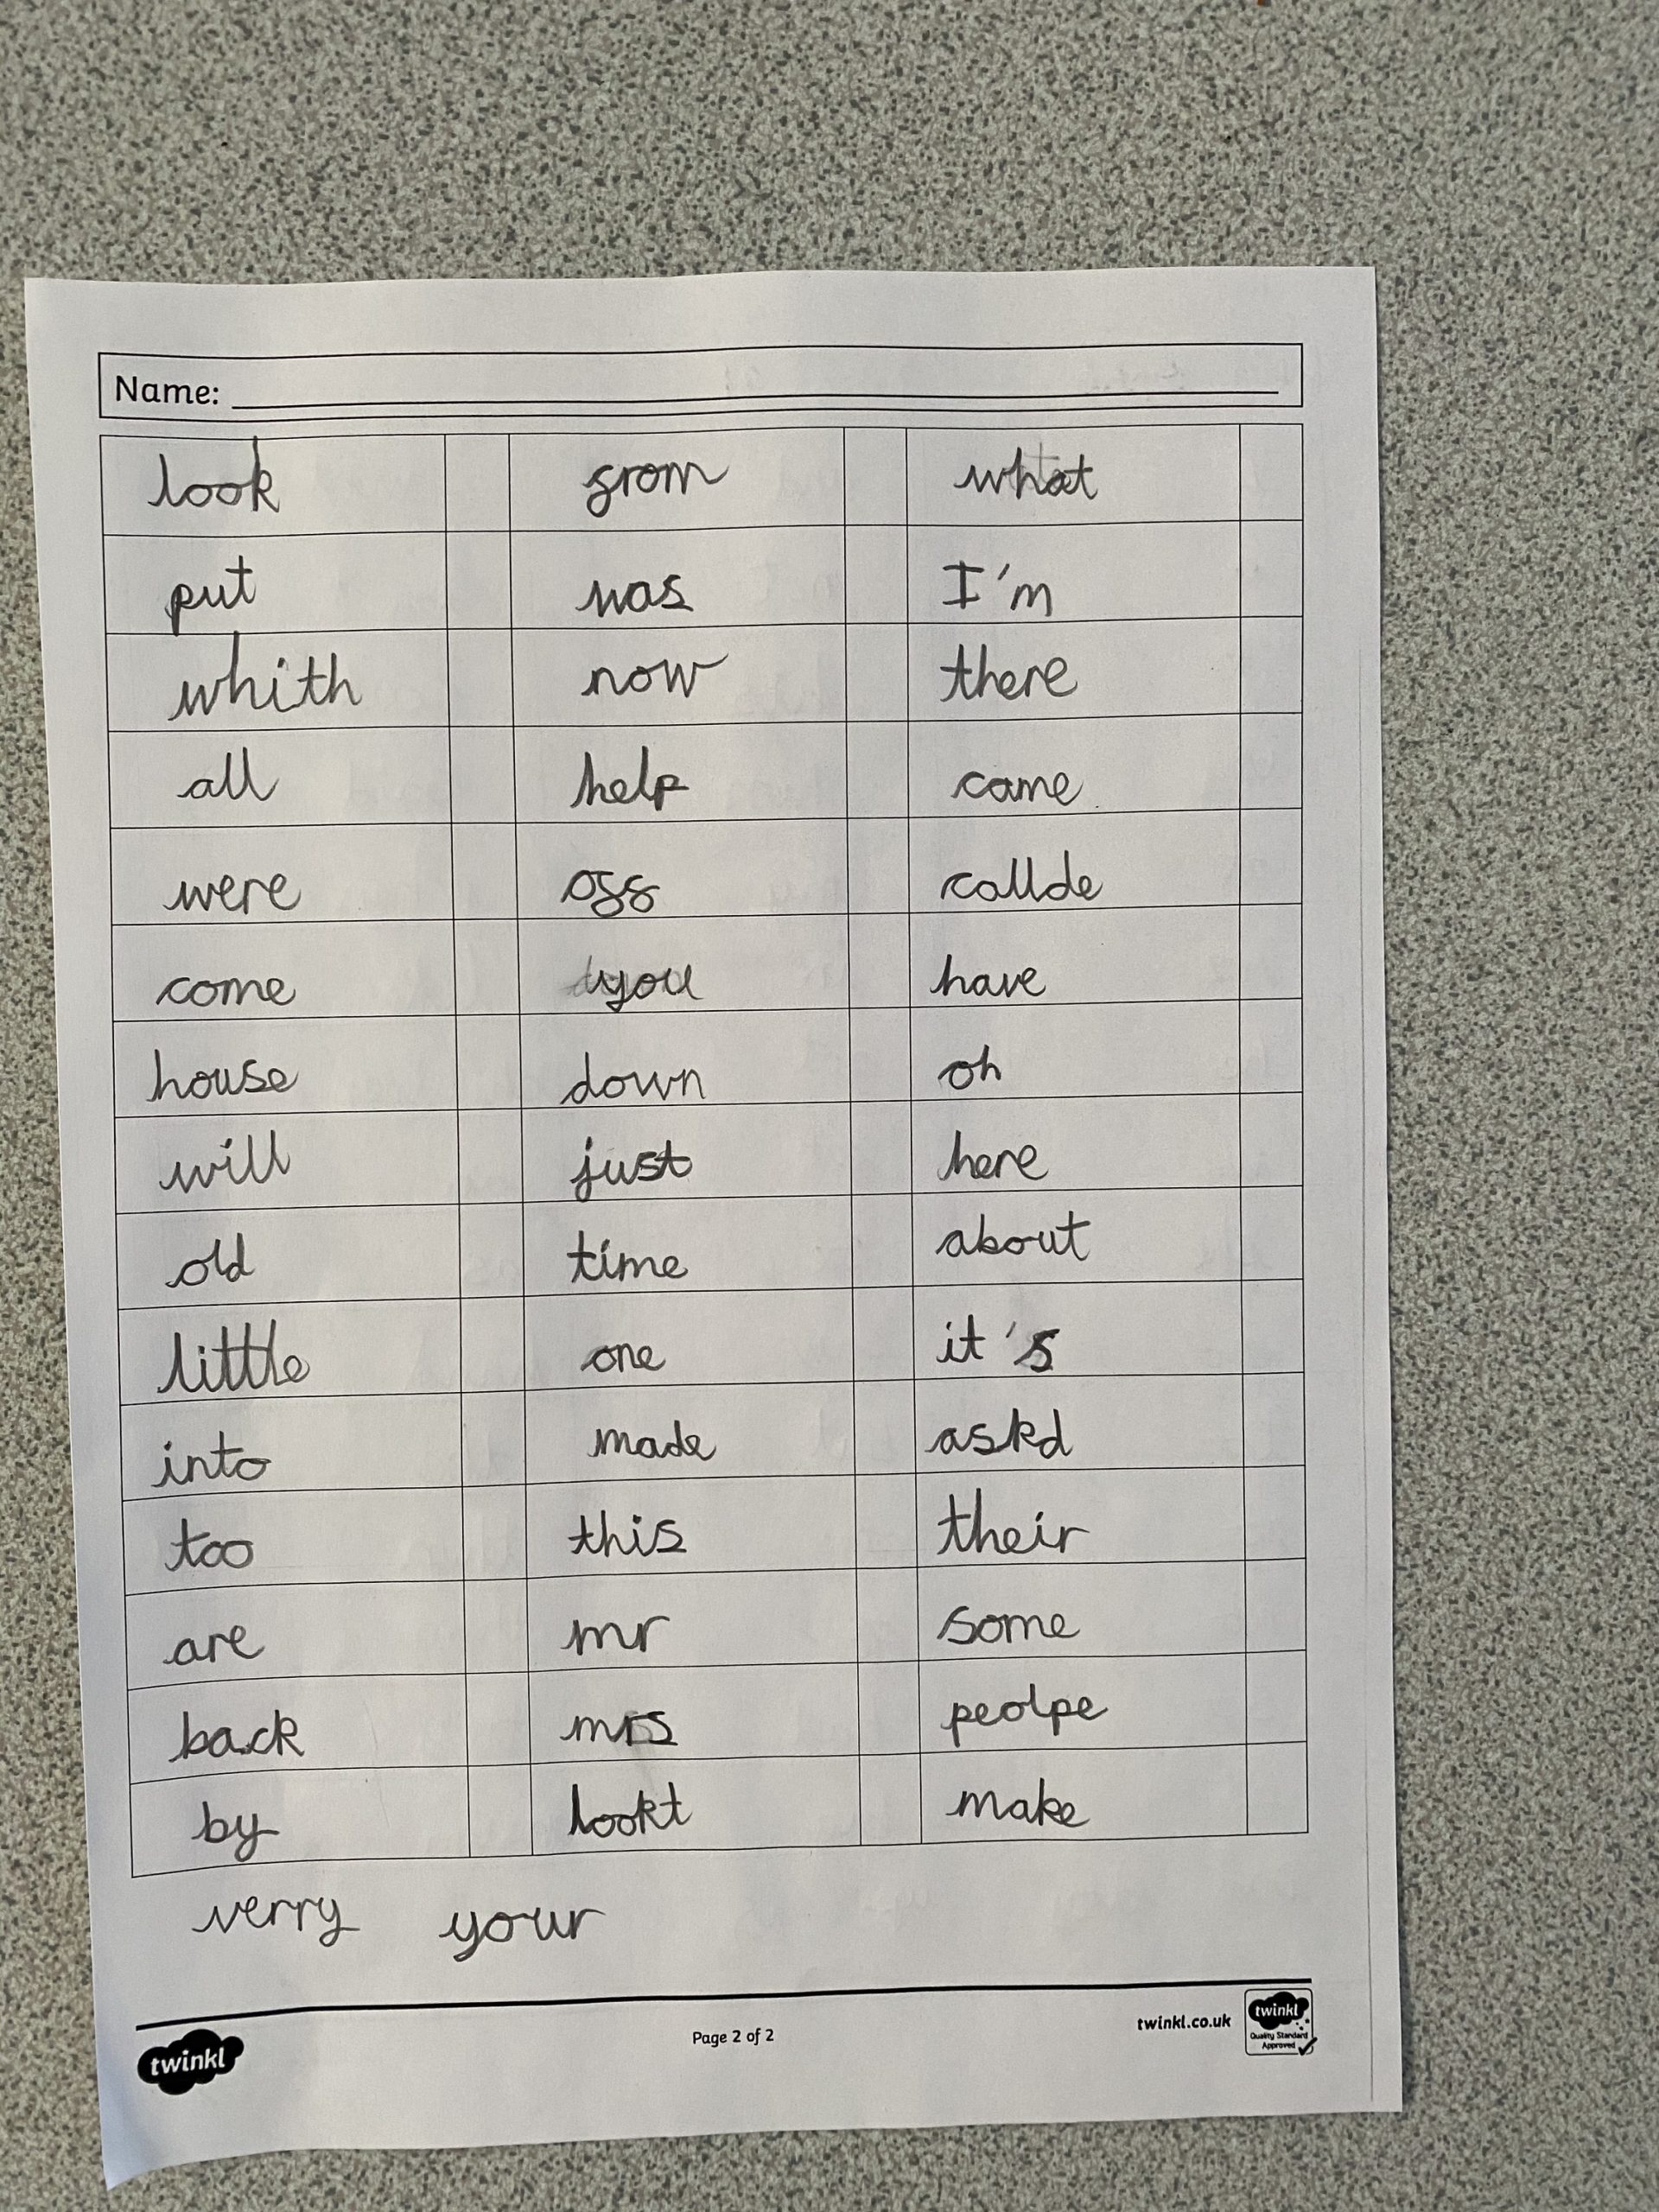 Name:
look from what
put was I'm
whith now there
all help came
were off callde
come you have
house down oh
will just here
old time about
little one it's
into made askd
too this their
are mr some
back mrs peolpe
by lookt make
verry your
twinkl Page 2 of 2 twinkl.co.uk twinkl
Quality Standard
Approved